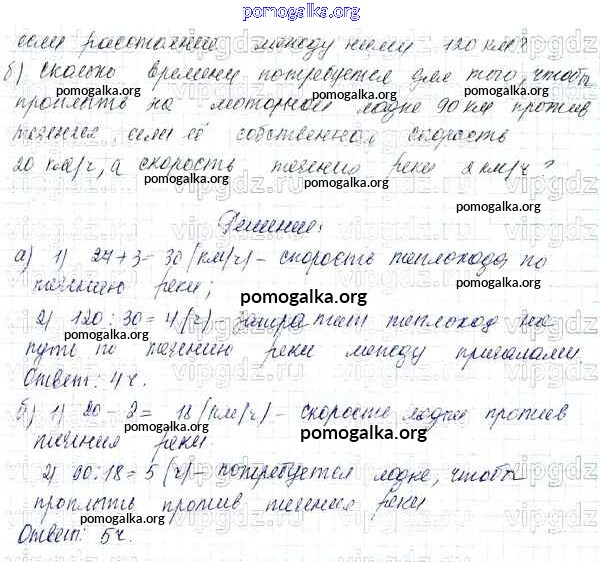 pomogalka.org
если расстояние между ними 120 км?
б) Сколько времени потребуется для того, чтобы
проплыть на моторной лодке 90 км против
течения, если её собственная скорость
20 км/ч, а скорость течения реки 2 км/ч?
Решение:
а) 1) 27+3=30 (км/ч) – скорость теплохода по
течению реки;
2) 120:30=4 (ч) затратит теплоход на
путь по течению реки между причалами
Ответ: 4 ч.
б) 1) 20-2= 18 (км/ч) – скорость лодки против
течения реки.
2) 90:18=5 (ч) – потребуется лодке, чтобы
проплыть против течения реки
Ответ: 5 ч.